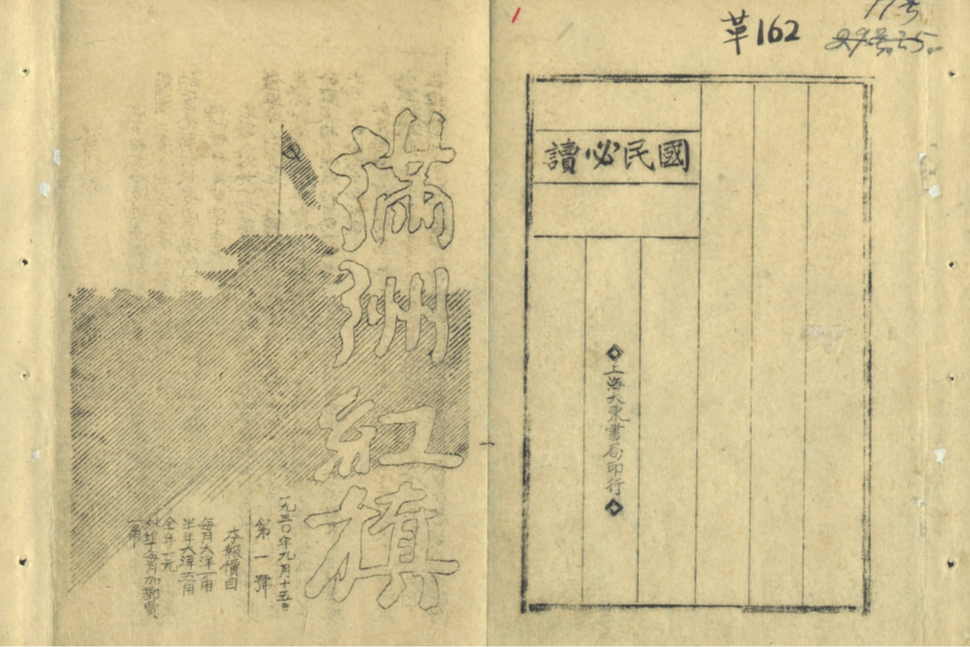 革162
國民必讀
上海大東書局印行
滿洲紅旗
一九三〇年九月十五日
第一號
本報價目
每月大洋一角
半年大洋五角
全年一元
外埠每月加郵費